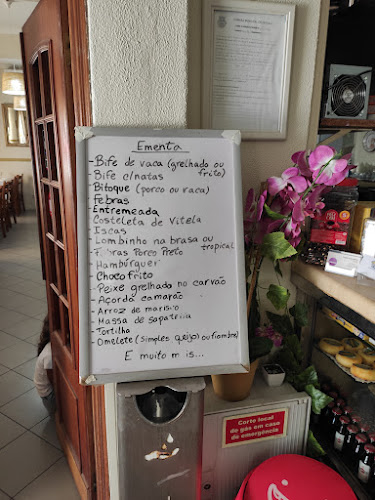 Ementa
- Bife de vaca (grelhado ou frito)
- Bife c/natas
- Bitoque (porco ou vaca)
- Febras
- Entremeada
- Costeleta de Vitela
- Iscas
- Lombinho na brasa ou tropical
- Febras Porco Preto
- Hambúrguer
- Choco frito
- Peixe grelhado no carvão
- Açorda camarão
- Arroz de marisco
- Massa de sapateira
- Tortilha
- Omelete (simples queijo ou fiambre)
E muito m is...
Corte local
de gás em caso
de emergência